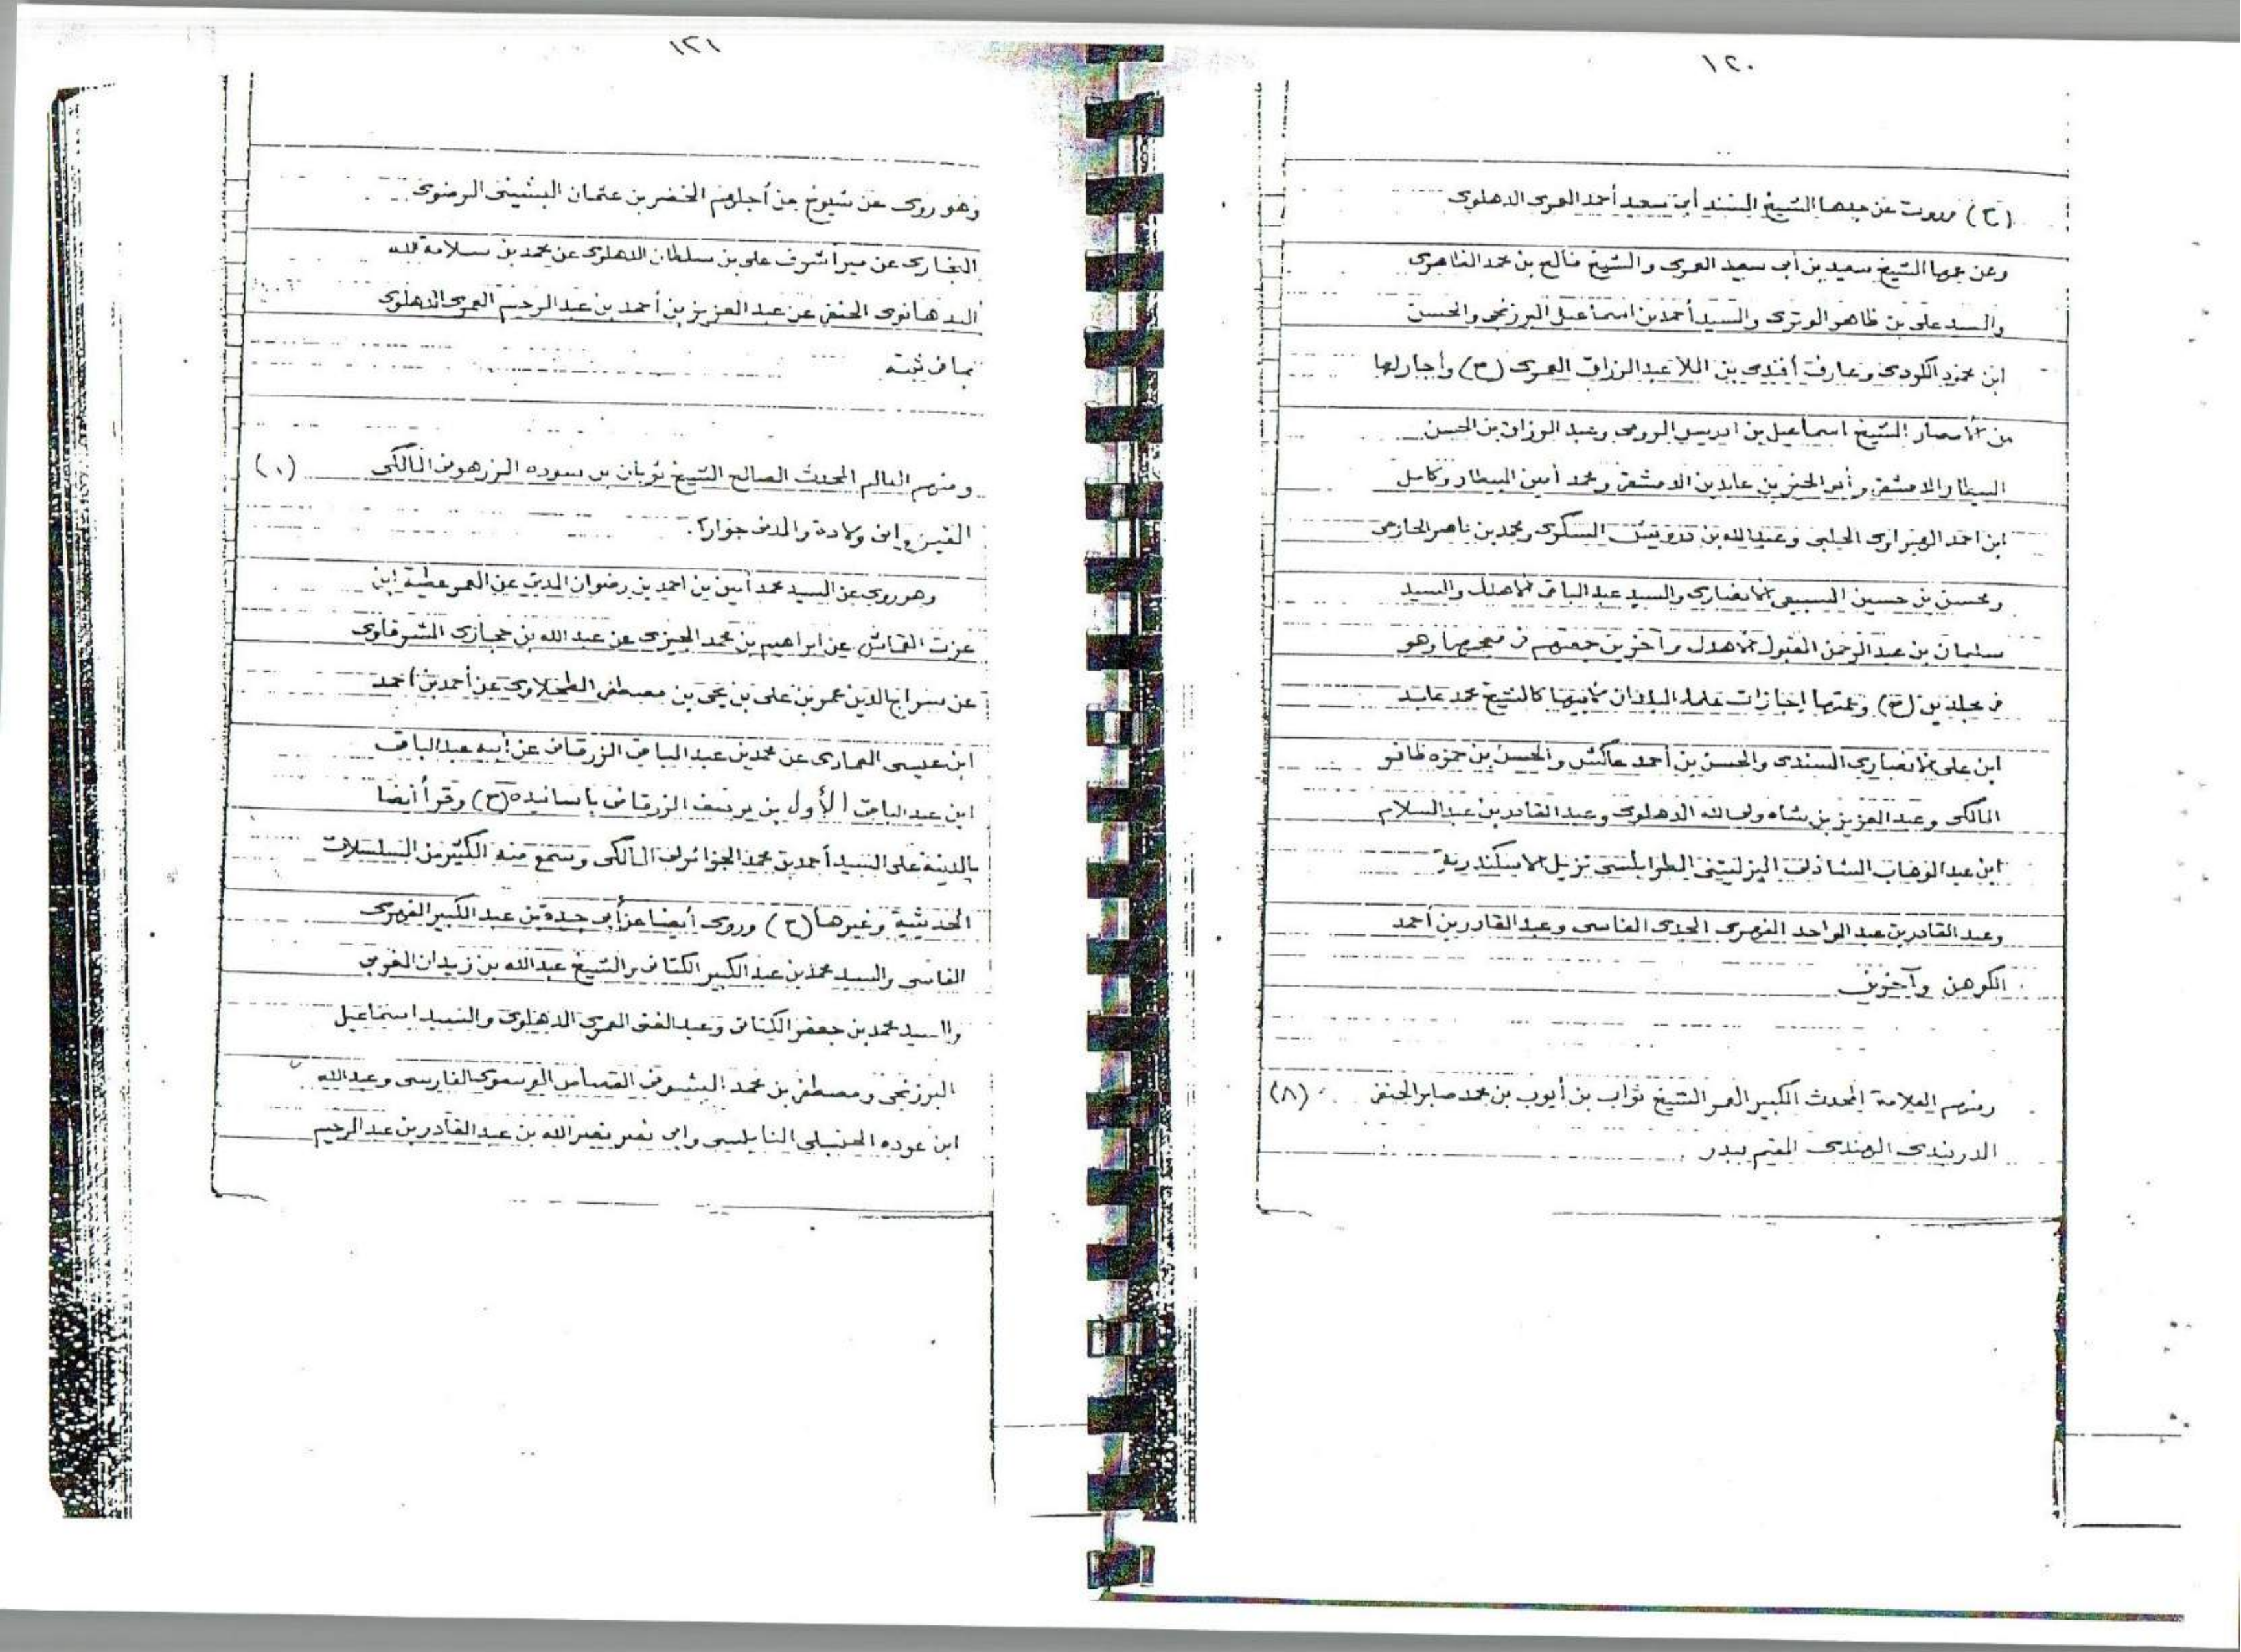 ١٢٠
(ح) وروت عن جدها الشيخ المسند أبى سعيد أحمد العمرى الدهلوى
وعن عمها الشيخ سعيد بن أبى سعيد العمرى والشيخ فالح بن محمد الظاهرى
والسيد على بن ظاهر الوترى والسيد أحمد بن اسماعيل البرزنجى والحسن
ابن محمود الكردى وعارف أفندى بن الملا عبد الرزاق العمرى (ح) وأجاز لها
من الأمصار الشيخ اسماعيل بن ادريس الرومى وعبد الرزاق بن الحسن
البيطار الدمشقى وأبو الخير بن عابدين الدمشقى ومحمد أمين البيطار وكامل
ابن احمد الهبراوى الحلبى وعبد الله بن درويش السكرى ومحمد بن ناصر الحازمى
ومحسن بن حسين السبيعى الأنصارى والسيد عبد الباقى الأهدل والسيد
سليمان بن عبد الرحمن المقبول الأهدل وآخرين جمعتهم فى معجمها وهو
فى مجلدين (ح) وعمتها اجازات علماء البلدان لأبيها كالشيخ محمد عابد
ابن على الأنصارى السندى والحسن بن أحمد عاكش والحسن بن حمزه ظافر
المالكى وعبد العزيز بن شاه ولى الله الدهلوى وعبد القادر بن عبد السلام
ابن عبد الوهاب الشاذلى اليزليتنى الطرابلسى نزيل الاسكندرية
وعبد القادر بن عبد الواحد الفهرى الجدى الفاسى وعبد القادر بن أحمد
الكوهن وآخرين
ومنهم العلامة المحدث الكبير المعمر الشيخ ثواب بن أيوب بن محمد صابر الحنفى (٨)
الدربندى الهندى المقيم ببدر
١٢١
وهو روى عن شيوخ من أجلهم الخضر بن عثمان البشينى الرضوى
البخارى عن مير أشرف على بن سلطان الدهلوى عن محمد بن سلامة الله
البدهانوى الحنفى عن عبد العزيز بن أحمد بن عبد الرحيم العمرى الدهلوى
بما فى ثبته
ومنهم العالم المحدث الصالح الشيخ ثوبان بن سوده الزرهونى المالكى (١)
القيروانى ولادة والمدنى جوارا.
وهو روى عن السيد محمد أمين بن احمد بن رضوان المدنى عن المعمر عطية ابن
عزت القماش عن ابراهيم بن محمد الجيزى عن عبد الله بن حجازى الشرقاوى
عن سراج الدين عمر بن على بن يحيى بن مصطفى الطحلاوى عن أحمد بن أحمد
ابن عيسى العمارى عن محمد بن عبد الباقى الزرقانى عن أبيه عبد الباقى
ابن عبد الباقى الأول بن يوسف الزرقانى باسانيده (ح) وقرأ أيضا
بالمدينة على السيد أحمد بن محمد الجزائرى المالكى وسمع منه الكثير من المسلسلات
الحديثية وغيرها (ح) وروى أيضا عن أبى جيدة بن عبد الكبير الفهرى
الفاسى والسيد محمد بن عبد الكبير الكتانى والشيخ عبد الله بن زيدان الغرمى
والسيد محمد بن جعفر الكتانى وعبد الغنى العمرى الدهلوى والسيد اسماعيل
البرزنجى ومصطفى بن محمد البشوفى القصاص الفارسى وعبد الله
ابن عوده الحنبلى النابلسى وابى نصر نصر الله بن عبد القادر بن عبد الرحيم